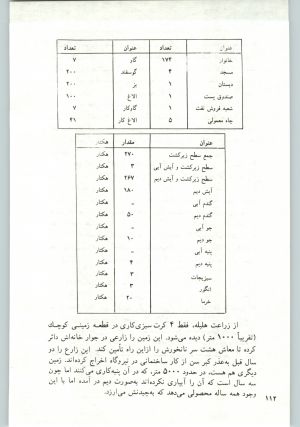 عنوان تعداد عنوان تعداد
خانوار ۱۷۴ گاو ۷
مسجد ۴ گوسفند ۲۰۰
دبستان ۱ بز ۲۰۰
صندوق پست ۱ الاغ ۱۰۰
شعبه فروش نفت ۱ گاوکار ۷
چاه معمولی ۵ الاغ کار ۴۱
عنوان مقدار هکتار
جمع سطح زیرکشت ۲۷۰ هکتار
سطح زیرکشت و آیش آبی ۳ هکتار
سطح زیرکشت و آیش دیم ۲۶۷ هکتار
آیش دیم ۱۸۰ هکتار
گندم آبی - هکتار
گندم دیم ۵۰ هکتار
جو آبی - هکتار
جو دیم ۱۰ هکتار
پنبه آبی - هکتار
پنبه دیم ۴ هکتار
سبزیجات ۳ هکتار
انگور ۳ هکتار
خرما ۲۰ هکتار
از زراعت هلیله، فقط ۴ کرت سبزی‌کاری در قطعه زمینی کوچک
(تقریباً ۱۰۰۰ متر) دیده می‌شود. این زمین را زارعی در جوار خانه‌اش دائر
کرده تا معاش هشت سر نانخورش را ازاین راه تأمین کند. این زارع را دو
سال قبل به‌عذر کبر سن از کار ساختمانی در نیروگاه اخراج کرده‌اند. زمین
دیگری هم هست، در حدود ۵۰۰۰ متر، که در آن پنبه‌کاری می‌کنند اما چون
سه سال است که آن را آبیاری نکرده‌اند به‌صورت دیم در آمده اما با این
وجود همه ساله محصولی می‌دهد که به‌چیدنش می‌ارزد.
۱۱۲